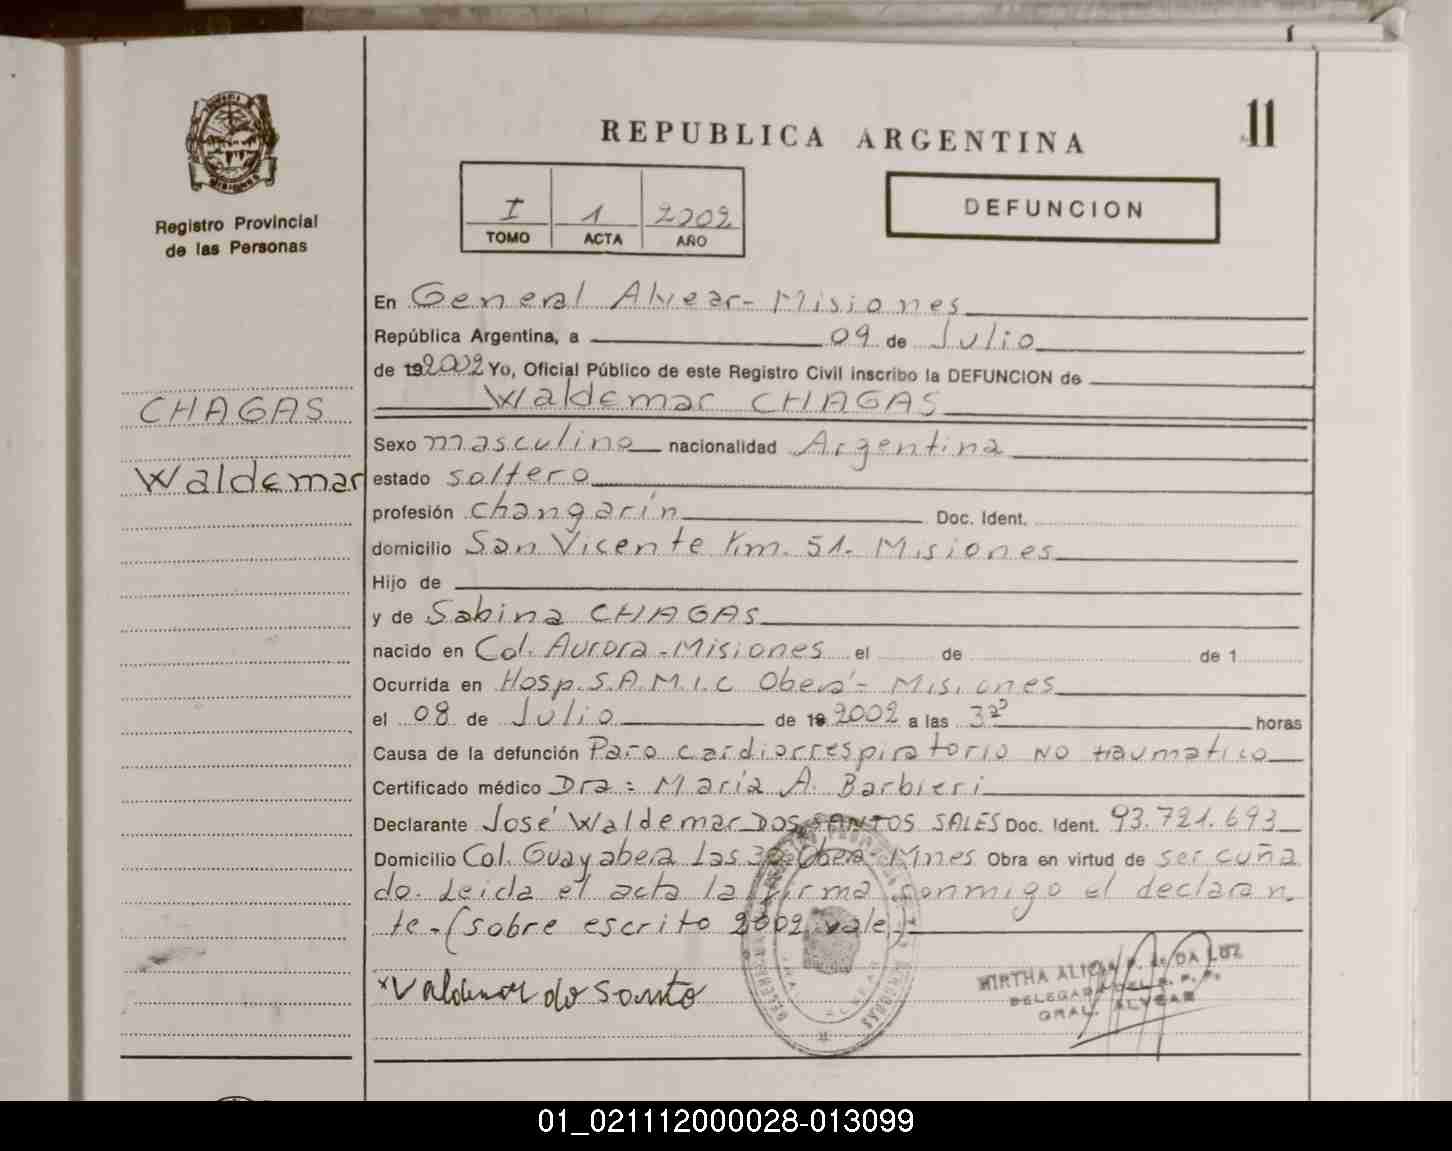 11
REPUBLICA ARGENTINA
DEFUNCION
I 1 2002
TOMO ACTA AÑO
MISIONES
Registro Provincial
de las Personas
CHAGAS
Waldemar
En General Alvear - Misiones
República Argentina, a 09 de Julio
de 192002 Yo, Oficial Público de este Registro Civil inscribo la DEFUNCION de
Waldemar CHAGAS
Sexo masculino nacionalidad Argentina
estado soltero
profesión changarín Doc. Ident.
domicilio San Vicente Km. 51. Misiones
Hijo de
y de Sabina CHAGAS
nacido en Col. Aurora - Misiones el de de 1
Ocurrida en Hosp. S.A.M.I.C Oberá - Misiones
el 08 de Julio de 192002 a las horas
Causa de la defunción Paro cardiorrespiratorio NO traumatico
Certificado médico Dra: María A. Barbieri
Declarante José Waldemar DOS SANTOS SALES Doc. Ident. 93.721.693
Domicilio Col. Guayabera Las 30 Oberá - Mnes Obra en virtud de ser cuña
do. Leida el acta la firma conmigo el declaran.
te. (sobre escrito 2002 vale)
x Valdemar do Santo
MIRTHA ALICIA DA LUZ
DELEGADA DEL R. P. P.
GRAL. ALVEAR
01_021112000028-013099